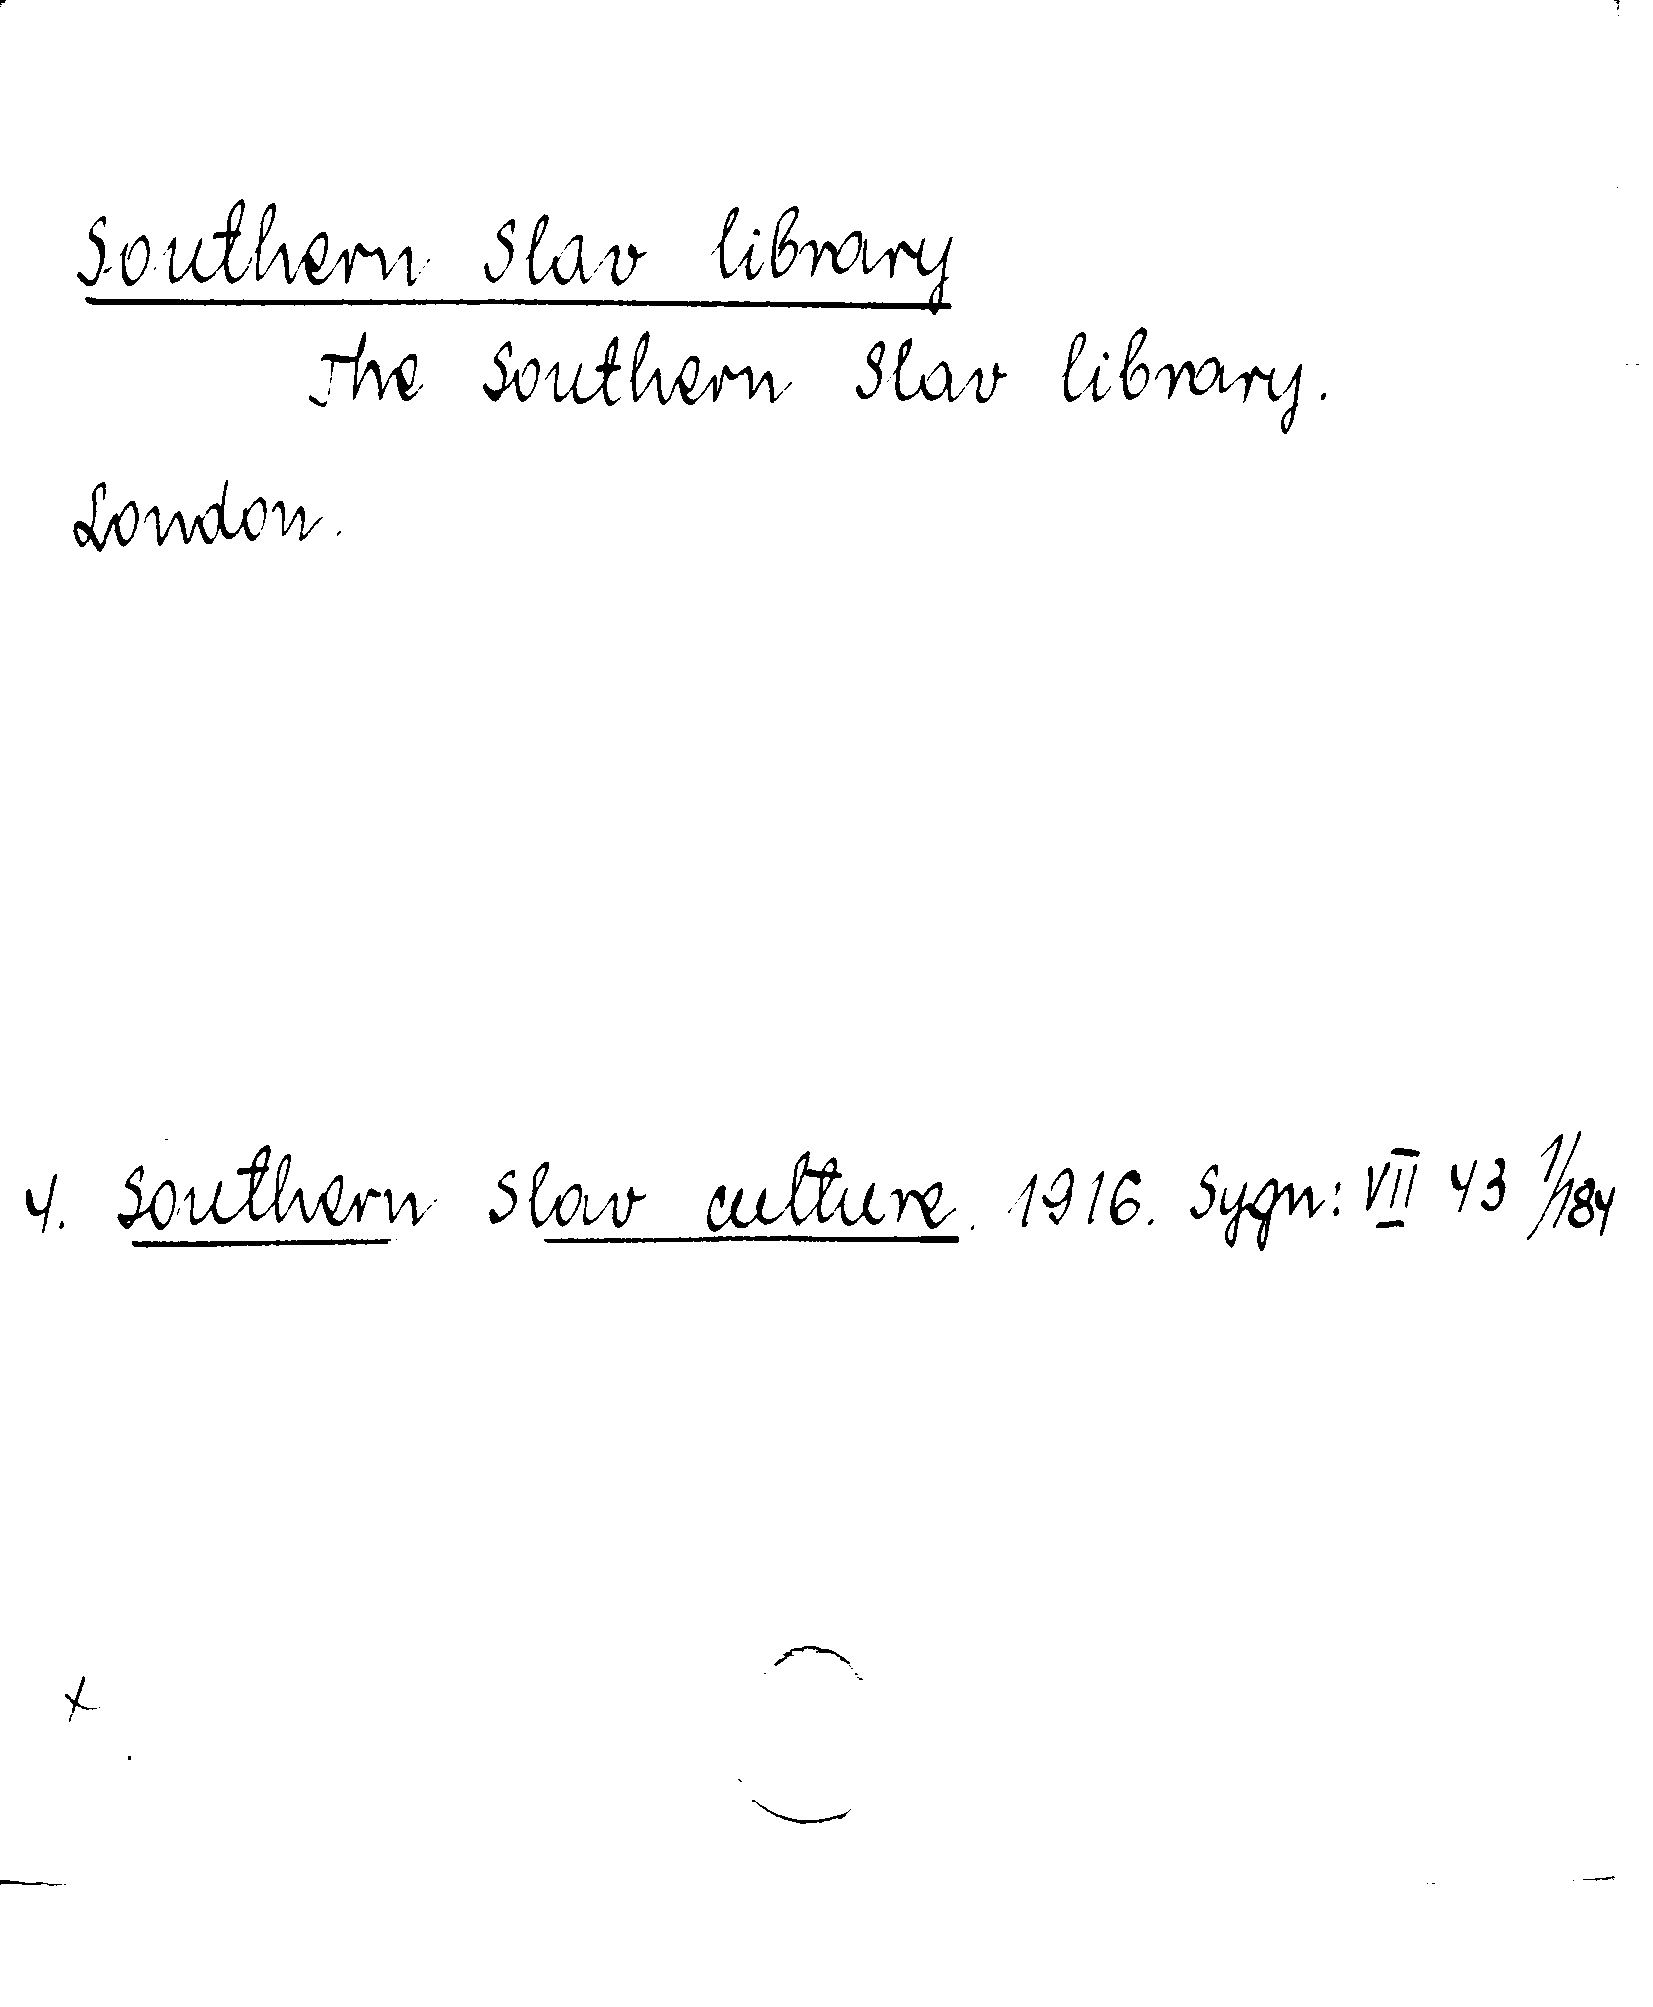 Southern Slav library
The Southern Slav library.
London.
4. Southern Slav culture. 1916. Sygn: VII 43 1/184
x